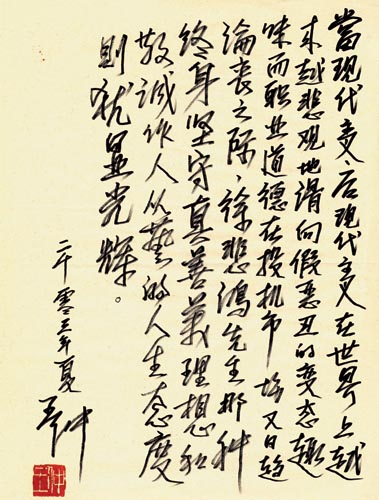 當现代主义、后现代主义在世界上越
来越悲观地滑向假恶丑的变态趣
味而职业道德在投机市场又日趋
淪丧之际、徐悲鸿先生那种
终身坚守真善美理想和
敬诚作人从藝的人生态度
则犹显光辉。
二千零三年夏